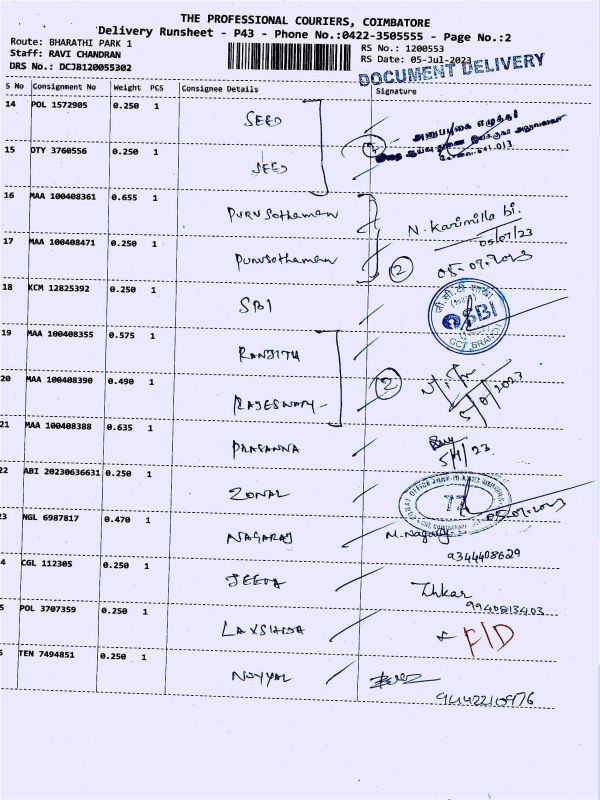 THE PROFESSIONAL COURIERS, COIMBATORE
Delivery Runsheet - P43 - Phone No.:0422-3505555 - Page No.:2
Route: BHARATHI PARK 1
Staff: RAVI CHANDRAN
DRS No.: DCJB120055302
RS No.: 1200553
RS Date: 05-Jul-2023
DOCUMENT DELIVERY
S No Consignment No Weight PCS Consignee Details Signature
14 POL 1572905 0.250 1 SEED
15 OTY 3760556 0.250 1 SEED
641 013
16 MAA 100408361 0.655 1 Purusothaman N. Karimilla bi.
05/07/23
17 MAA 100408471 0.250 1 Purusothaman 2 05-07-2023
18 KCM 12825392 0.250 1 SBI
SBI
GCT BRANCH
19 MAA 100408355 0.575 1 RANJITH
20 MAA 100408390 0.490 1 RAJESWARY 2
21 MAA 100408388 0.635 1 PRASANNA
22 ABI 20230636631 0.250 1 ZONAL
77
05-07-2023
23 NGL 6987817 0.470 1 NAGARAJ M. Nagaraj
9344408629
4 CGL 112305 0.250 1 JEEVA
9940813403
5 POL 3707359 0.250 1 F/D
TEN 7494851 0.250 1 NOYYAL